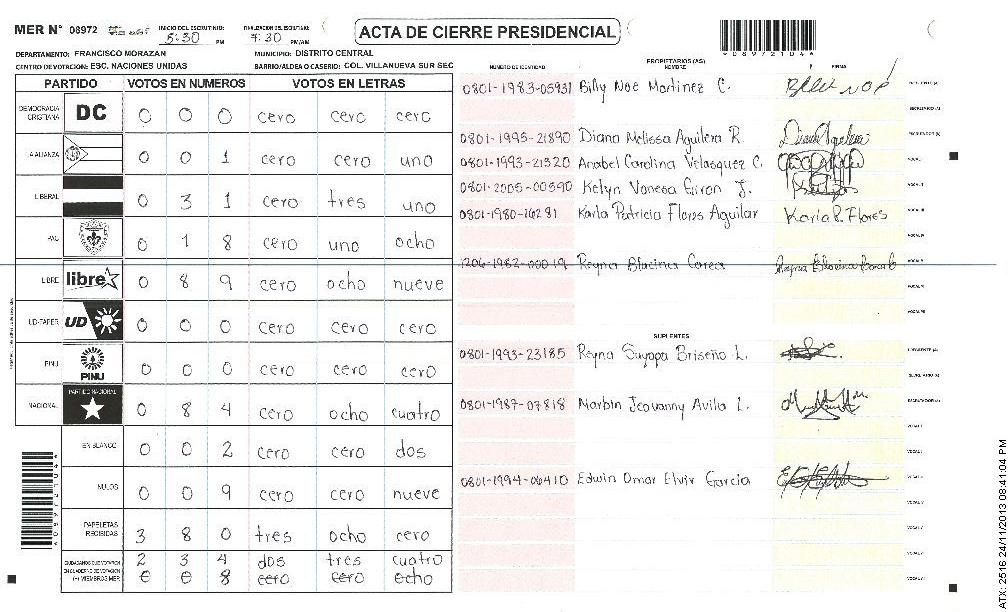 MER N° 08972
INICIO DEL ESCRUTINIO: 5:30 PM
FINALIZACION DEL ESCRUTINIO: 7:30 PM/AM
ACTA DE CIERRE PRESIDENCIAL
*08972104*
DEPARTAMENTO: FRANCISCO MORAZAN
MUNICIPIO: DISTRITO CENTRAL
CENTRO DE VOTACION: ESC. NACIONES UNIDAS
BARRIO/ALDEA O CASERIO: COL. VILLANUEVA SUR SEC
PARTIDO VOTOS EN NUMEROS VOTOS EN LETRAS
DEMOCRACIA CRISTIANA DC 0 0 0 cero cero cero
LA ALIANZA 0 0 1 cero cero uno
LIBERAL 0 3 1 cero tres uno
PAC 0 1 8 cero uno ocho
LIBRE libre 0 8 9 cero ocho nueve
UD-FAPER UD 0 0 0 cero cero cero
PINU PINU 0 0 0 cero cero cero
NACIONAL PARTIDO NACIONAL 0 8 4 cero ocho cuatro
EN BLANCO 0 0 2 cero cero dos
NULOS 0 0 9 cero cero nueve
PAPELETAS RECIBIDAS 3 8 0 tres ocho cero
CIUDADANOS QUE VOTARON EN CUADERNO DE VOTACION 2 3 4 dos tres cuatro
(+) MIEMBROS MER 0 0 8 cero cero ocho
PROPIETARIOS (AS)
NUMERO DE IDENTIDAD NOMBRE FIRMA
0801-1983-05931 Billy Noe Martinez C. Billy NOÉ PRESIDENTE (A)
SECRETARIO (A)
0801-1995-21890 Diana Melissa Aguilera R. Diana Aguilera ESCRUTADOR (A)
0801-1993-21320 Anabel Carolina Velasquez C. VOCAL I
0801-2005-00590 Kelyn Vanesa Giron J. VOCAL II
0801-1980-16281 Karla Patricia Flores Aguilar Karla P. Flores VOCAL III
VOCAL IV
1206-1982-00019 Reyna Blacina Correa VOCAL V
VOCAL VI
VOCAL VII
SUPLENTES
0801-1993-23185 Reyna Suyapa Briseño L. PRESIDENTE (A)
SECRETARIO (A)
0801-1987-07818 Marbin Jeovanny Avila L. ESCRUTADOR (A)
VOCAL I
VOCAL II
0801-1994-06410 Edwin Omar Elvir Garcia VOCAL III
VOCAL IV
VOCAL V
VOCAL VI
VOCAL VII
ATX: 2516 24/11/2013 08:41:04 PM